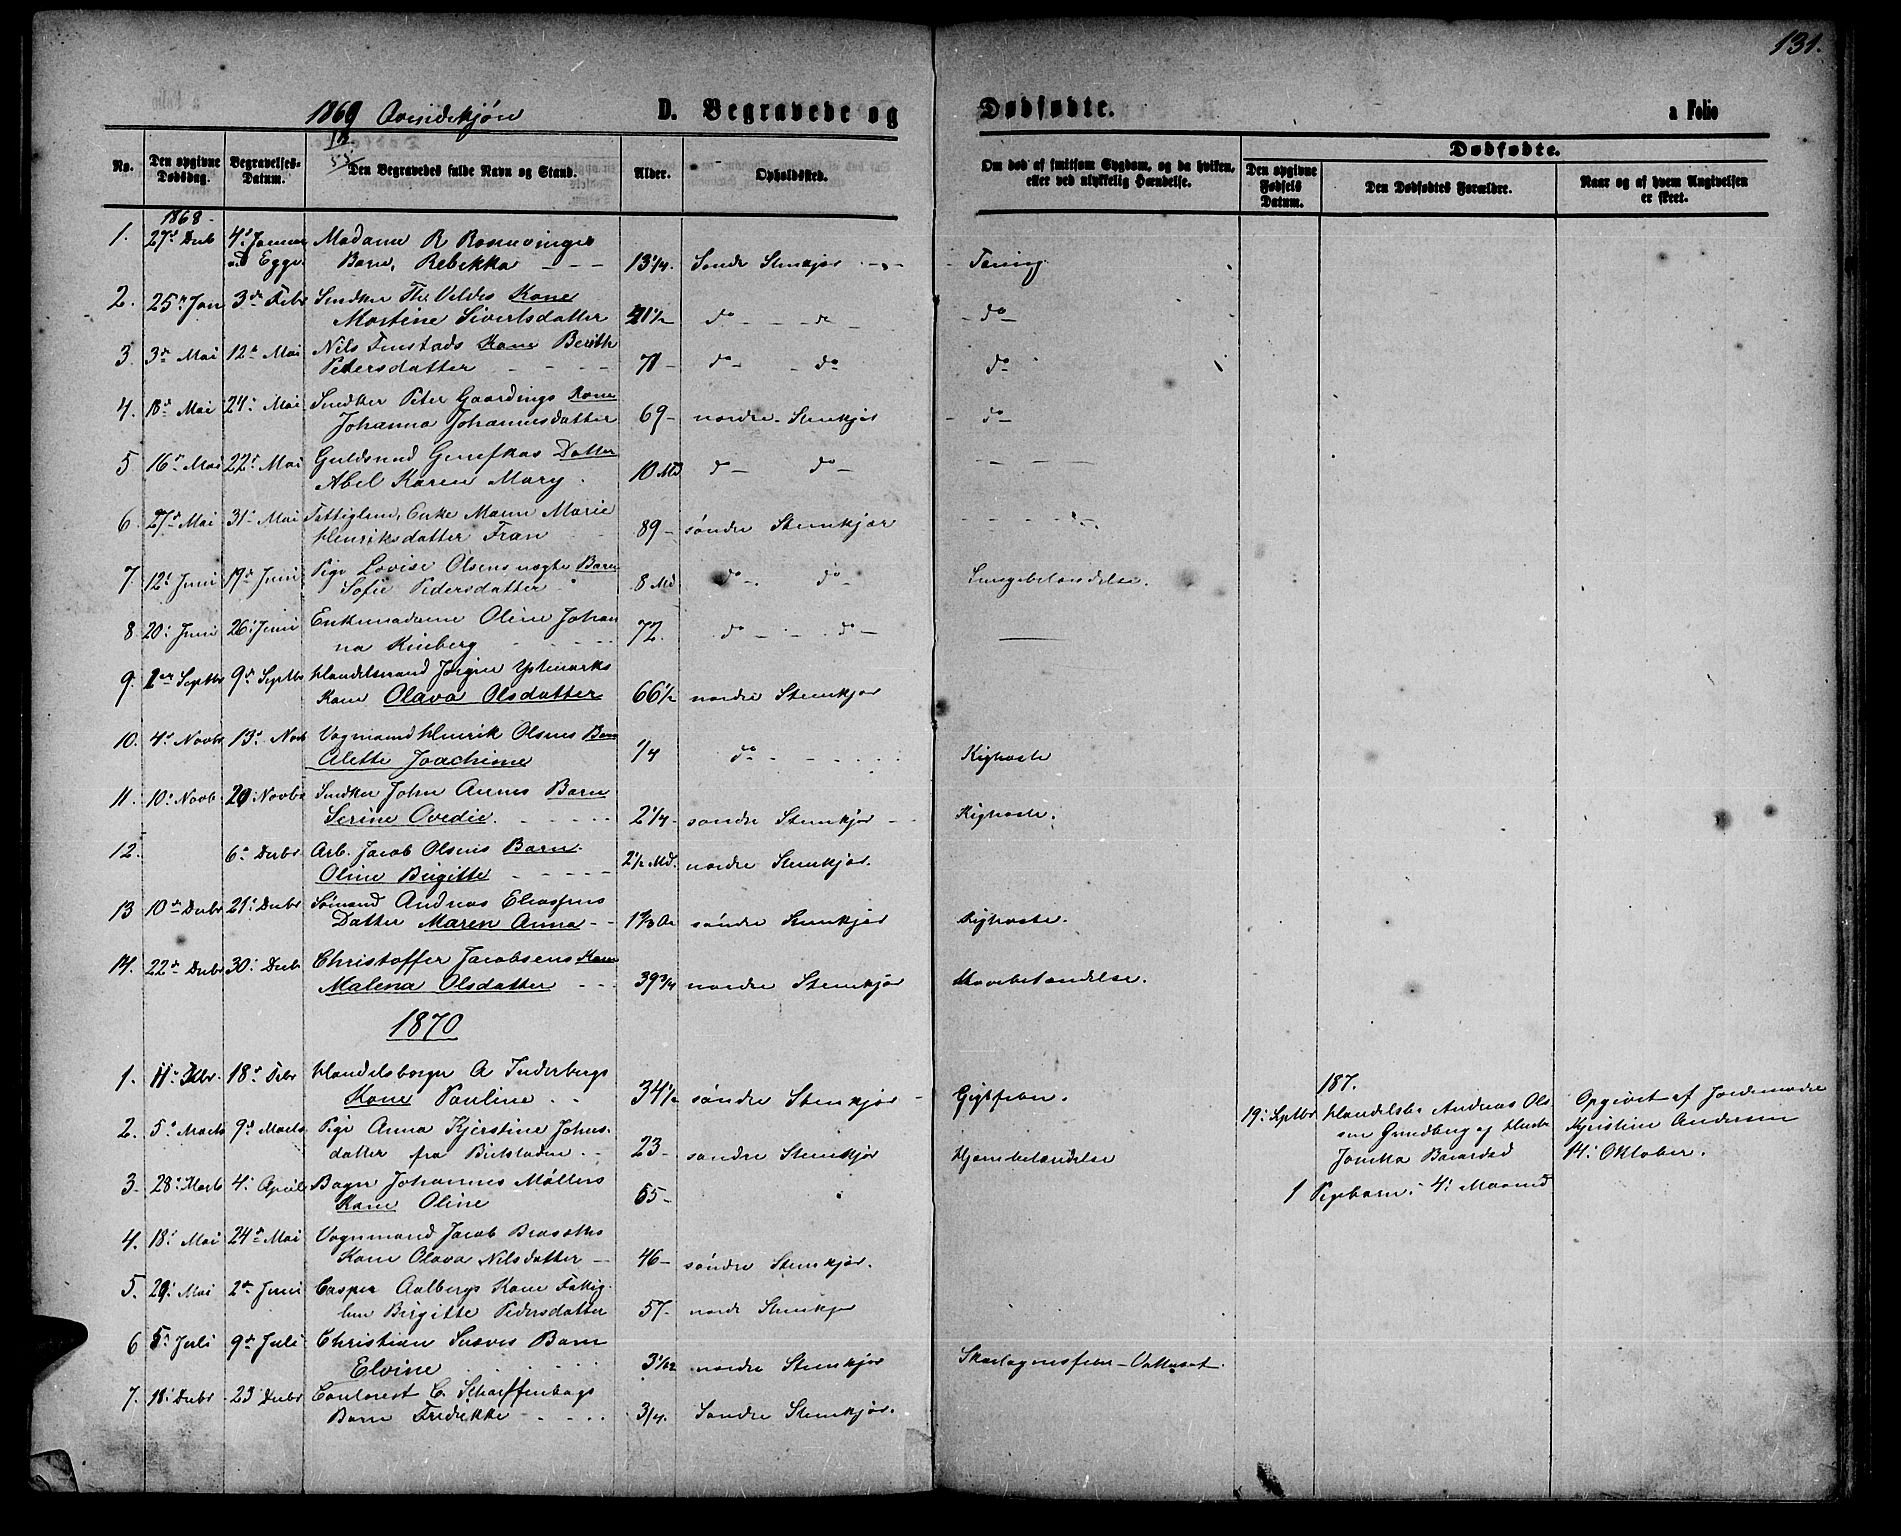 131.
1869 Qvindekjøn D. Begravede og Dødfødte. a Folio
No.
Den opgivne Dødsdag.
Begravelses-Datum.
Den Begravedes fulde Navn og Stand.
Alder.
Opholdssted.
Om død af smitsom Sygdom, og da hvilken, eller ved ulykkelig Hændelse.
Dødfødte.
Den opgivne Fødsels Datum.
Den Dødfødtes Forældre.
Naar og af hvem Angivelsen er skeet.
1868
1. 27d Decb 4d Januar Madame R Rosenvinges
Egge Barn, Rebekka 13 1/4. Søndre Stenkjær Tæring.
2. 25d Jan 3de Febr Snedker Th. Veldes Kone
Martine Sivertsdatter 41 1/2 do do do
3 3de Mai 12te Mai Nils Finstads Kone Berith
Petersdatter 71 do do do
4. 18de Mai 24d Mai Snedker Peter Gaardings Kone
Johanna Johannesdatter 69 nordre Stenkjær do
5 16de Mai 22d Mai Guldsmed Datter
Abel Karen Mary. 10 Md do do
6. 27d Mai 31d Mai Fattiglem, Enke Marie
Henriksdatter Fran 89 søndre Stenkjær
7 12d Juni 19de Juni Pige Lovise Olsens uægte Barn
Sofie Pedersdatter 8 Md. do do Lungebetændelse.
8. 20d Juni 26d Juni Enkemadame Oline Johan
na 72. do do
9. 1ste Septbr 9de Septbr Handelsmand Jørgen
Kone Olava Olsdatter 66 1/2 nordre Stenkjær
10. 4d Novbr 13d Novb Vogmand Henrik Olsens Barn
Alette Joachime 1/4 do Kighoste
11. 10d Novb 20d Novbr Snedker John Aunes Barn
Serine Ovedie. 2 1/4 søndre Stenkjær Kighoste.
12. 6d Decbr Arb. Jacob Olsens Barn
Oline Birgitte 2 1/2 Md. nordre Stenkjær.
13 10de Decbr 21d Decbr Sømand Andreas Eliassens
Datter Maren Anna søndre Stenkjær Kighoste.
14. 22de Decbr 30d Decb Christoffer Jacobsens Kone
Malena Olsdatter 39 3/4 nordre Stenkjær Mavebetændelse.
1870
1. 11d 18de Febr Handelsborger A Inderbergs
Kone Pauline 34 1/2 søndre Stenkjær Gigtfeber.
187.
19d Septbr Handelsb. Andreas Ols
sen og Hustr
1 Pigebarn. 4d Maaned
Opgivet af Jordemodre
Kjerstine Andersen
14d Oktober.
2. 5d Marts 9de Marts Pige Anna Kjerstine Johns-
datter fra 23 søndre Stenkjær Hjernebetændelse
3. 28d Marts 4d April Bager Johannes Møllers
Kone Oline 65
4. 18d Mai 24de Mai Vognmand Jacob
Kone Olava Nilsdatter 46 søndre Stenkjær.
5. 29d Mai 2de Juni Casper Aalbergs Kone Fattig-
lem Birgitte Pedersdatter 57 nordr Stenkjær
6 5d Juli 9de Juli Christian Barn
Elvine 3 1/12 nordre Stenkjær Skarlagensfeber - Vattersot.
7. 18d Decbr 23 Decbr C. Scharffenbergs
Barn Fredrikke 3/4. Søndre Stenkjær.